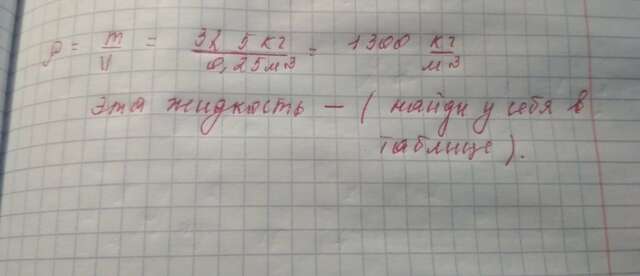 ρ = m/V = 325 кг / 0,25 м3 = 1300 кг/м3
Эта жидкость – ( найди у себя в
таблице ).